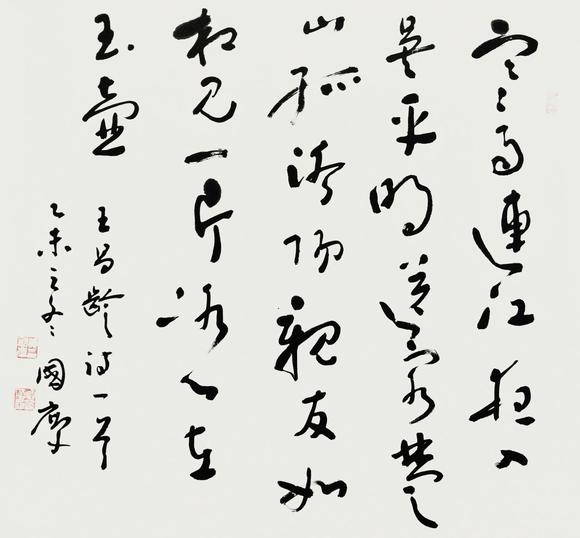 寒雨連江夜入
吳平明送客楚
山孤洛陽親友如
相見一片冰心在
玉壺
王昌齡詩一首
乙未之冬國